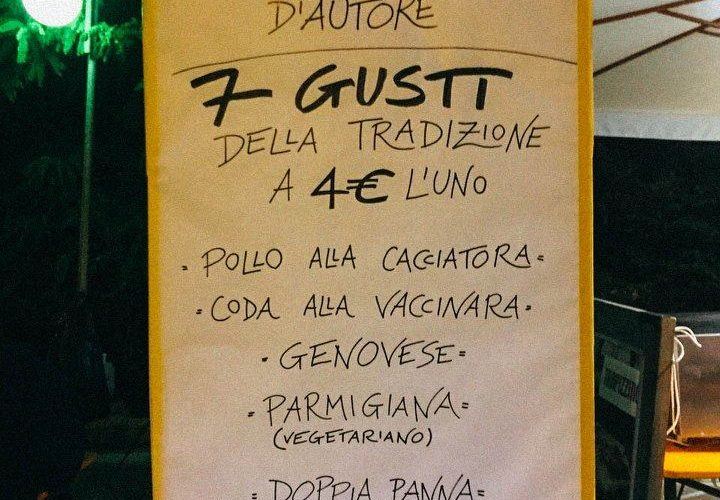 D'AUTORE
7 GUSTI
DELLA TRADIZIONE
A 4€ L'UNO
• POLLO ALLA CACCIATORA •
• CODA ALLA VACCINARA •
• GENOVESE •
• PARMIGIANA •
(VEGETARIANO)
• DOPPIA PANNA •